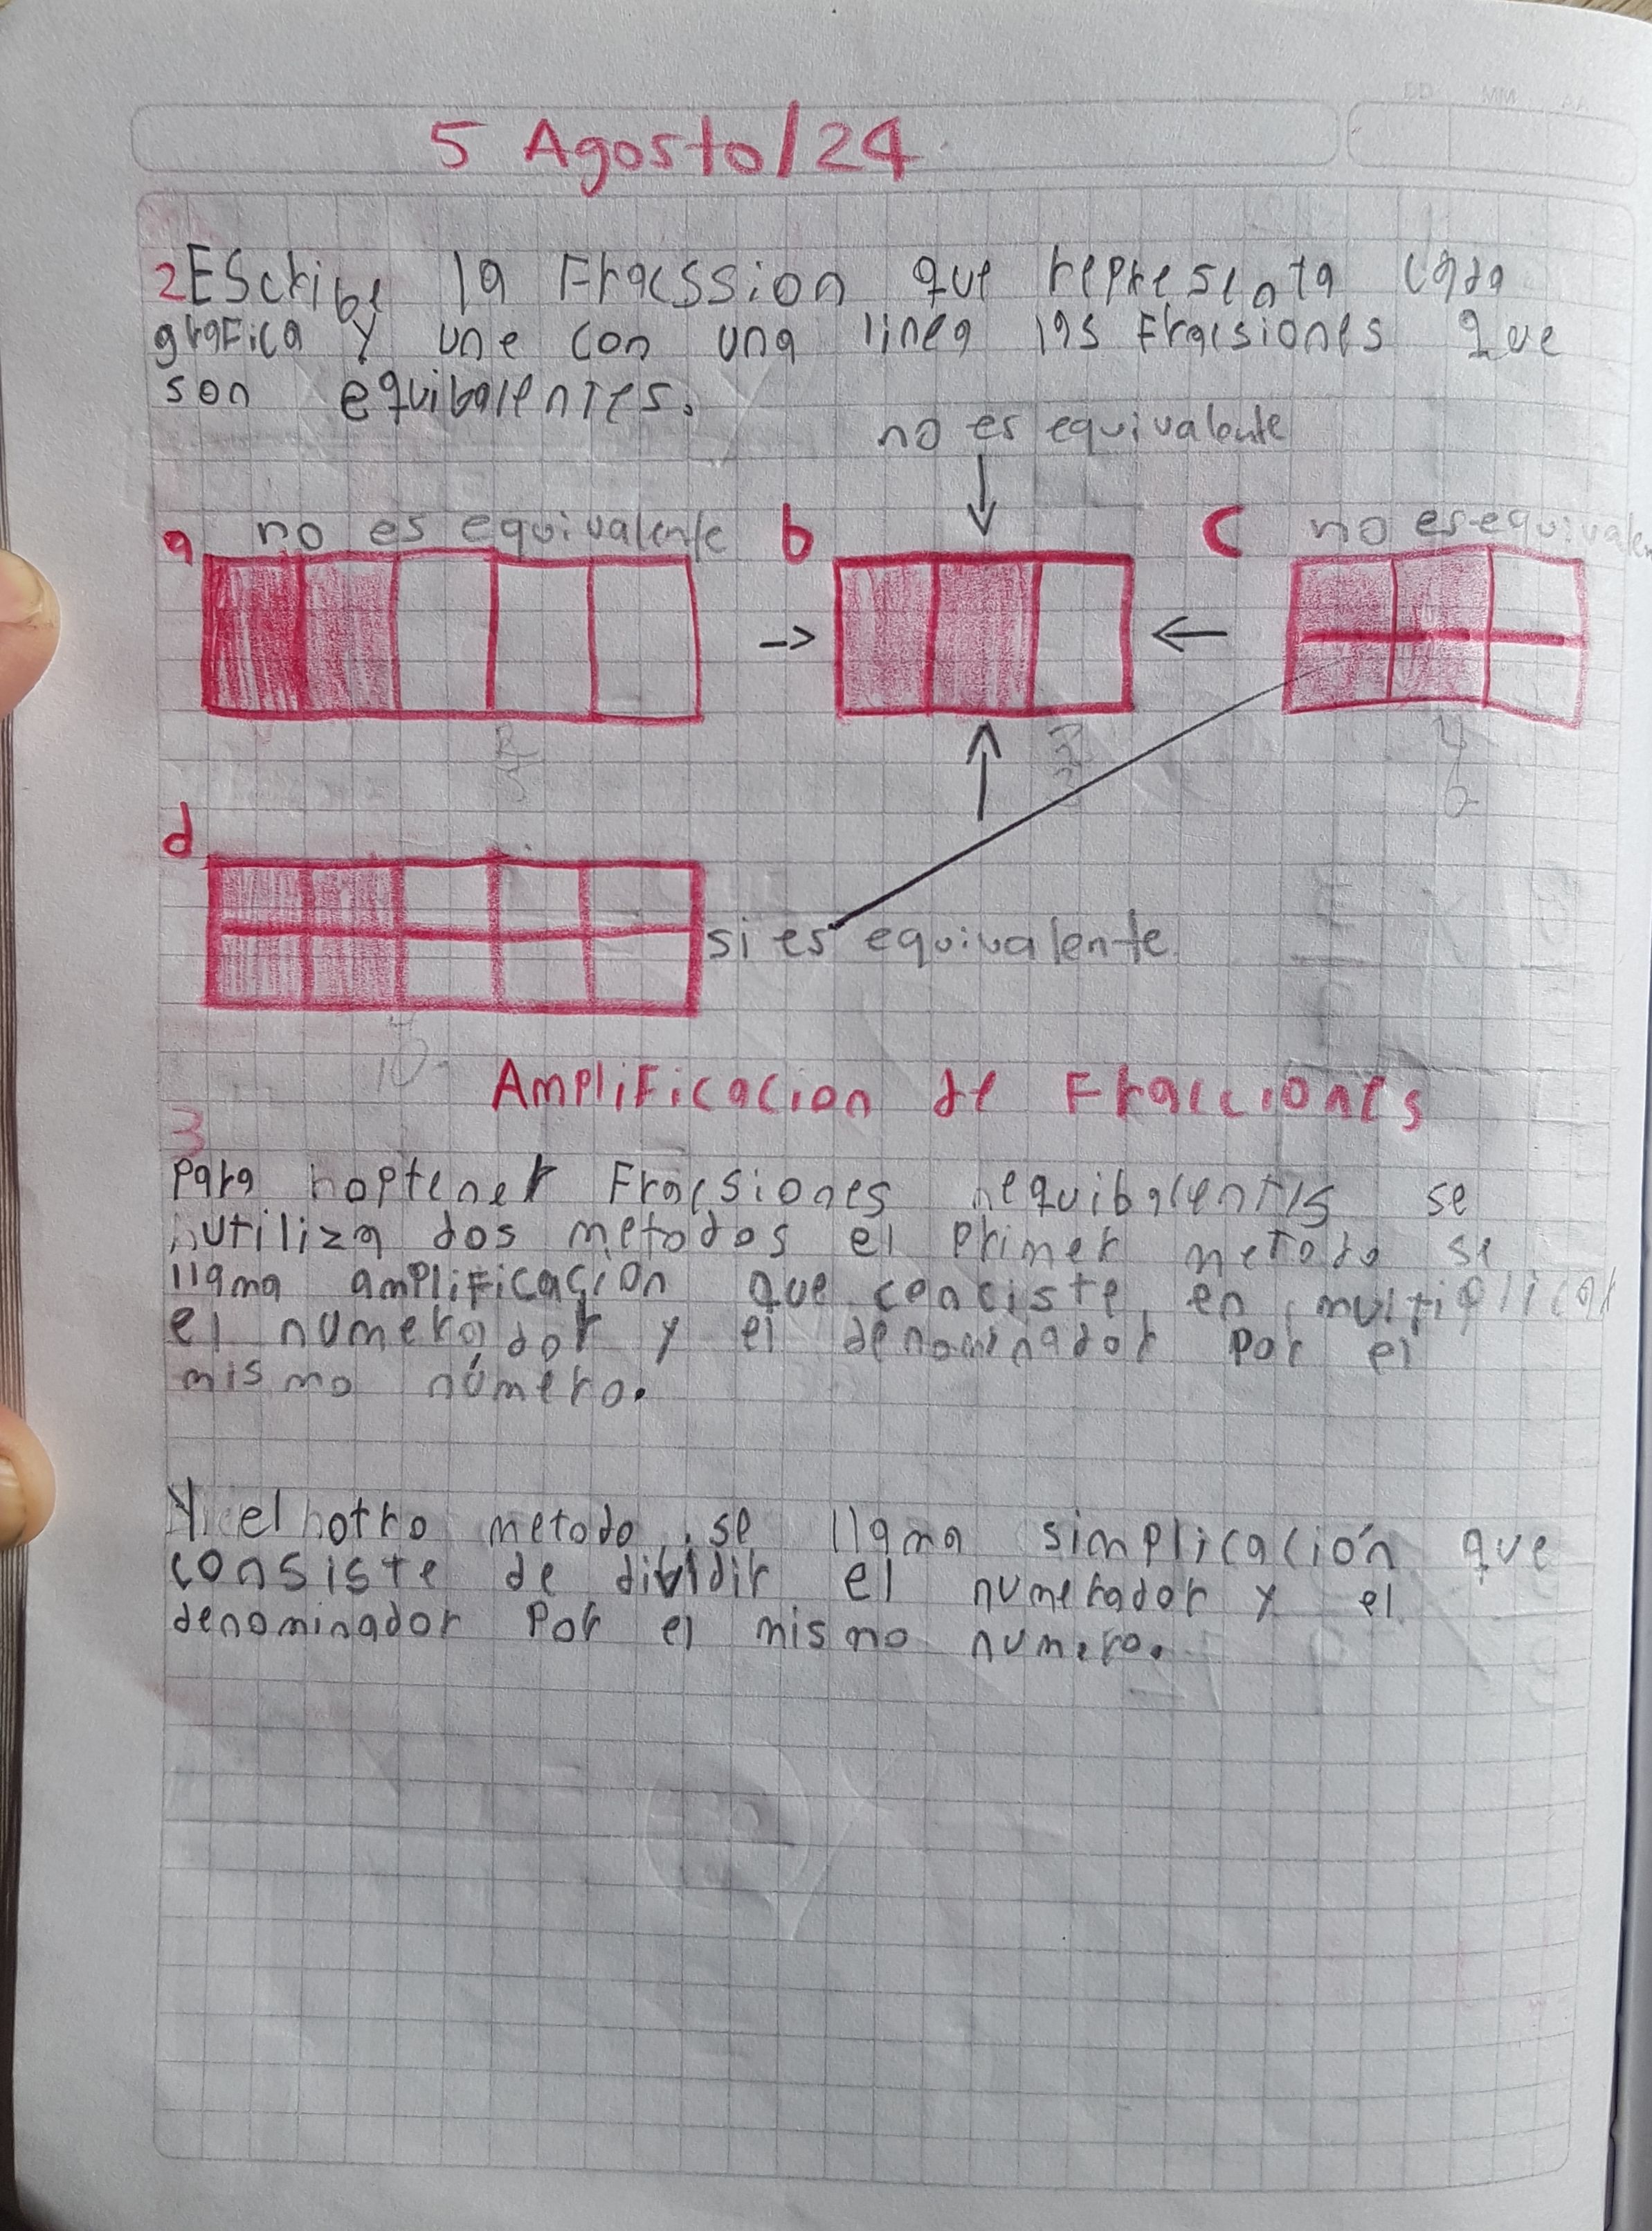 DD MM AA
5 Agosto/24
2 EScribe la Fracssion que representa cada
graFica y une con una linea las Fracsiones que
son equibalenTes.
no es equivalente
a no es equivalente b c no es equivalen
2/5
4/6
d
si es equivalente
4/10
AmpliFicacion de Fracciones
3
Para hoptener Fracsiones hequibalentes se
hutiliza dos metodos el primer metodo se
llama ampliFicacion que conciste en multiplicar
el numerador y el denominador por el
mismo número.
Y el hotro metodo se llama simplicación que
consiste de dividir el numerador y el
denominador Por el mismo numero.